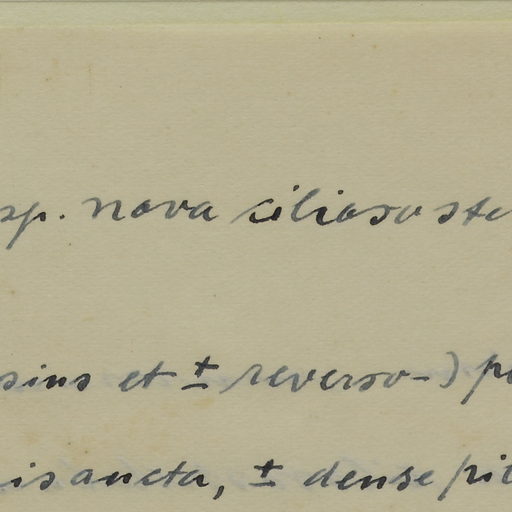 sp. nova cilioso ste
sins et ± reverso-) p
is ancta, ± dense pil